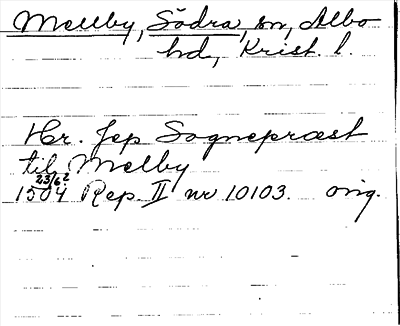 Mellby, Södra, sn, Albo
hd, Krist. l.
Hr. Jep Sognepræst
til Melby
23/6?
1504 Rep. II nr 10103. orig.